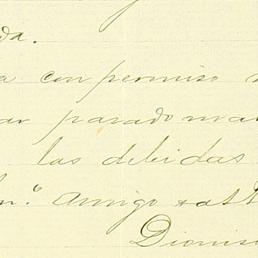 da.
a con permiso
ar parado ma
las debidas
n.° Amigo & att
Dionis